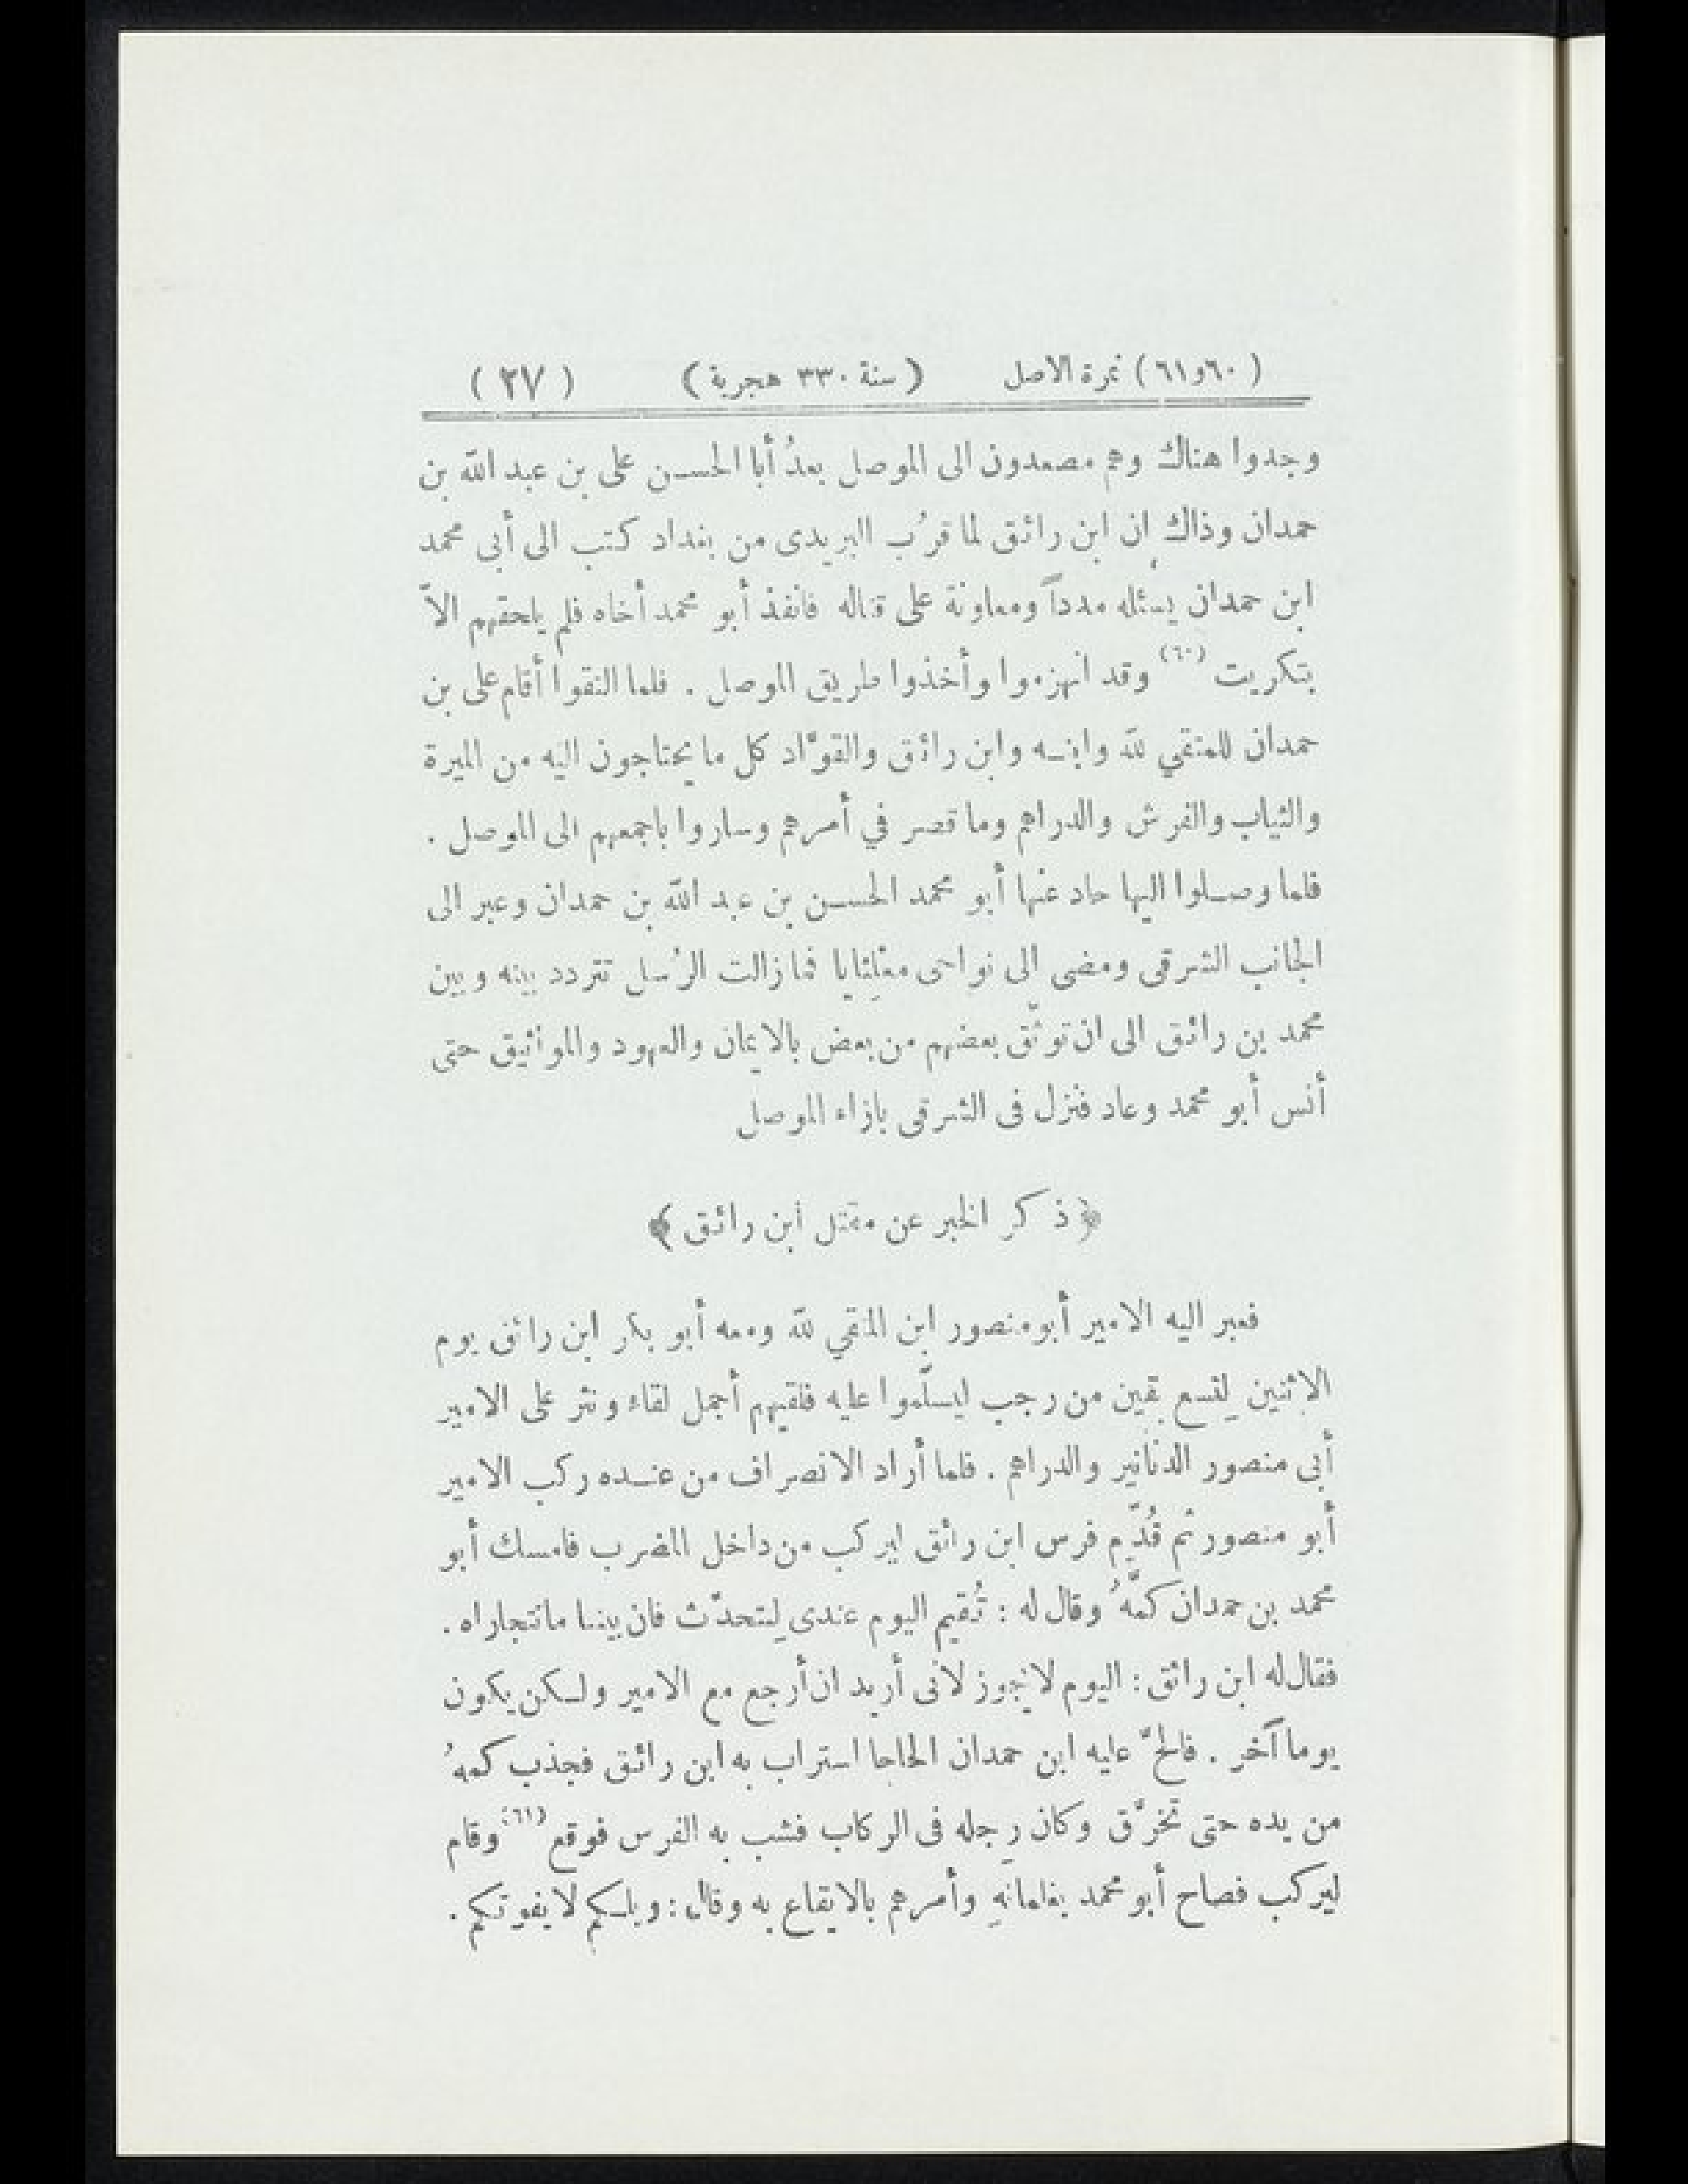 (٦٠و٦١) نمرة الاصل (سنة ٣٣٠ هجرية) (٢٧)
وجدوا هناك وهم مصعدون الى الموصل بعدُ أبا الحسن على بن عبد الله بن
حمدان وذاك ان ابن رائق لما قرُب البريدى من بغداد كتب الى أبى محمد
ابن حمدان يسئله مدداً ومعاونة على قتاله فانفذ أبو محمد أخاه فلم يلحقهم الاّ
بتكريت (٦٠) وقد انهزموا وأخذوا طريق الموصل . فلما التقوا أقام على بن
حمدان للمتقي لله وابنه وابن رائق والقوّاد كل ما يحتاجون اليه من الميرة
والثياب والفرش والدراهم وما قصر في أمرهم وساروا باجمعهم الى الموصل .
فلما وصلوا اليها حاد عنها أبو محمد الحسن بن عبد الله بن حمدان وعبر الى
الجانب الشرقى ومضى الى نواحى معلثايا فما زالت الرُسل تتردد بينه وبين
محمد بن رائق الى ان توثّق بعضهم من بعض بالايمان والعهود والمواثيق حتى
أنس أبو محمد وعاد فنزل فى الشرقى بازاء الموصل
﴿ ذكر الخبر عن مقتل ابن رائق ﴾
فعبر اليه الامير أبو منصور ابن المتقي لله ومعه أبو بكر ابن رائق يوم
الاثنين لتسع بقين من رجب ليسلّموا عليه فلقيهم أجمل لقاء ونثر على الامير
أبى منصور الدنانير والدراهم . فلما أراد الانصراف من عنده ركب الامير
أبو منصور ثم قُدّم فرس ابن رائق ليركب من داخل المضرب فامسك أبو
محمد بن حمدان كمَّهُ وقال له : تُقيم اليوم عندى لِنتحدّث فان بيننا ما نتجاراه .
فقال له ابن رائق : اليوم لا يجوز لانى أريد ان أرجع مع الامير ولكن يكون
يوما آخر . فالحّ عليه ابن حمدان الحاحا استراب به ابن رائق فجذب كمهُ
من يده حتى تخرّق وكان رِجله فى الركاب فشب به الفرس فوقع (٦١) وقام
ليركب فصاح أبو محمد بغلمانهِ وأمرهم بالايقاع به وقال : ويلكم لا يفوتكم .